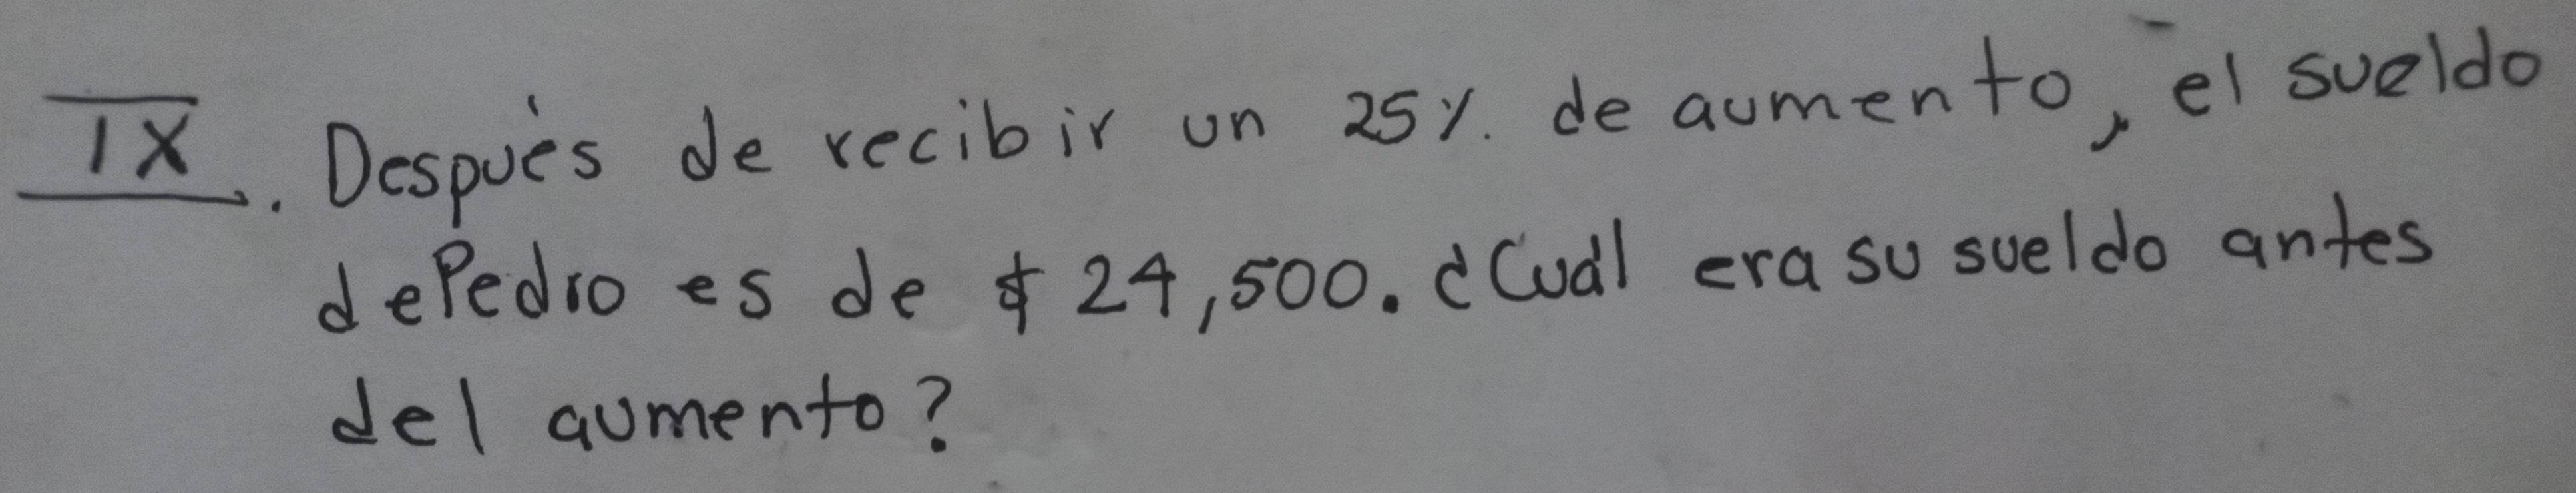 IX. Después de recibir un 25%. de aumento, el sueldo
de Pedro es de $ 24,500. ¿Cuál era su sueldo antes
del aumento?